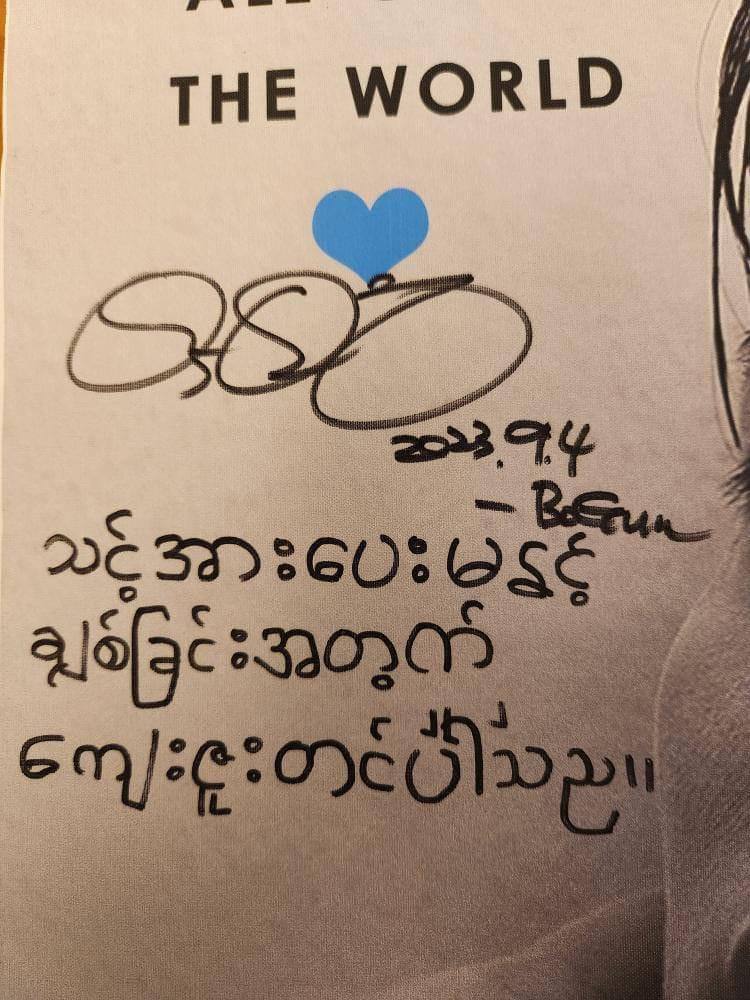 THE WORLD
2023.9.4
- BoGum
သင့်အားပေးမှုနှင့်
ချစ်ခြင်းအတွက်
ကျေးဇူးတင်ပါသည်။